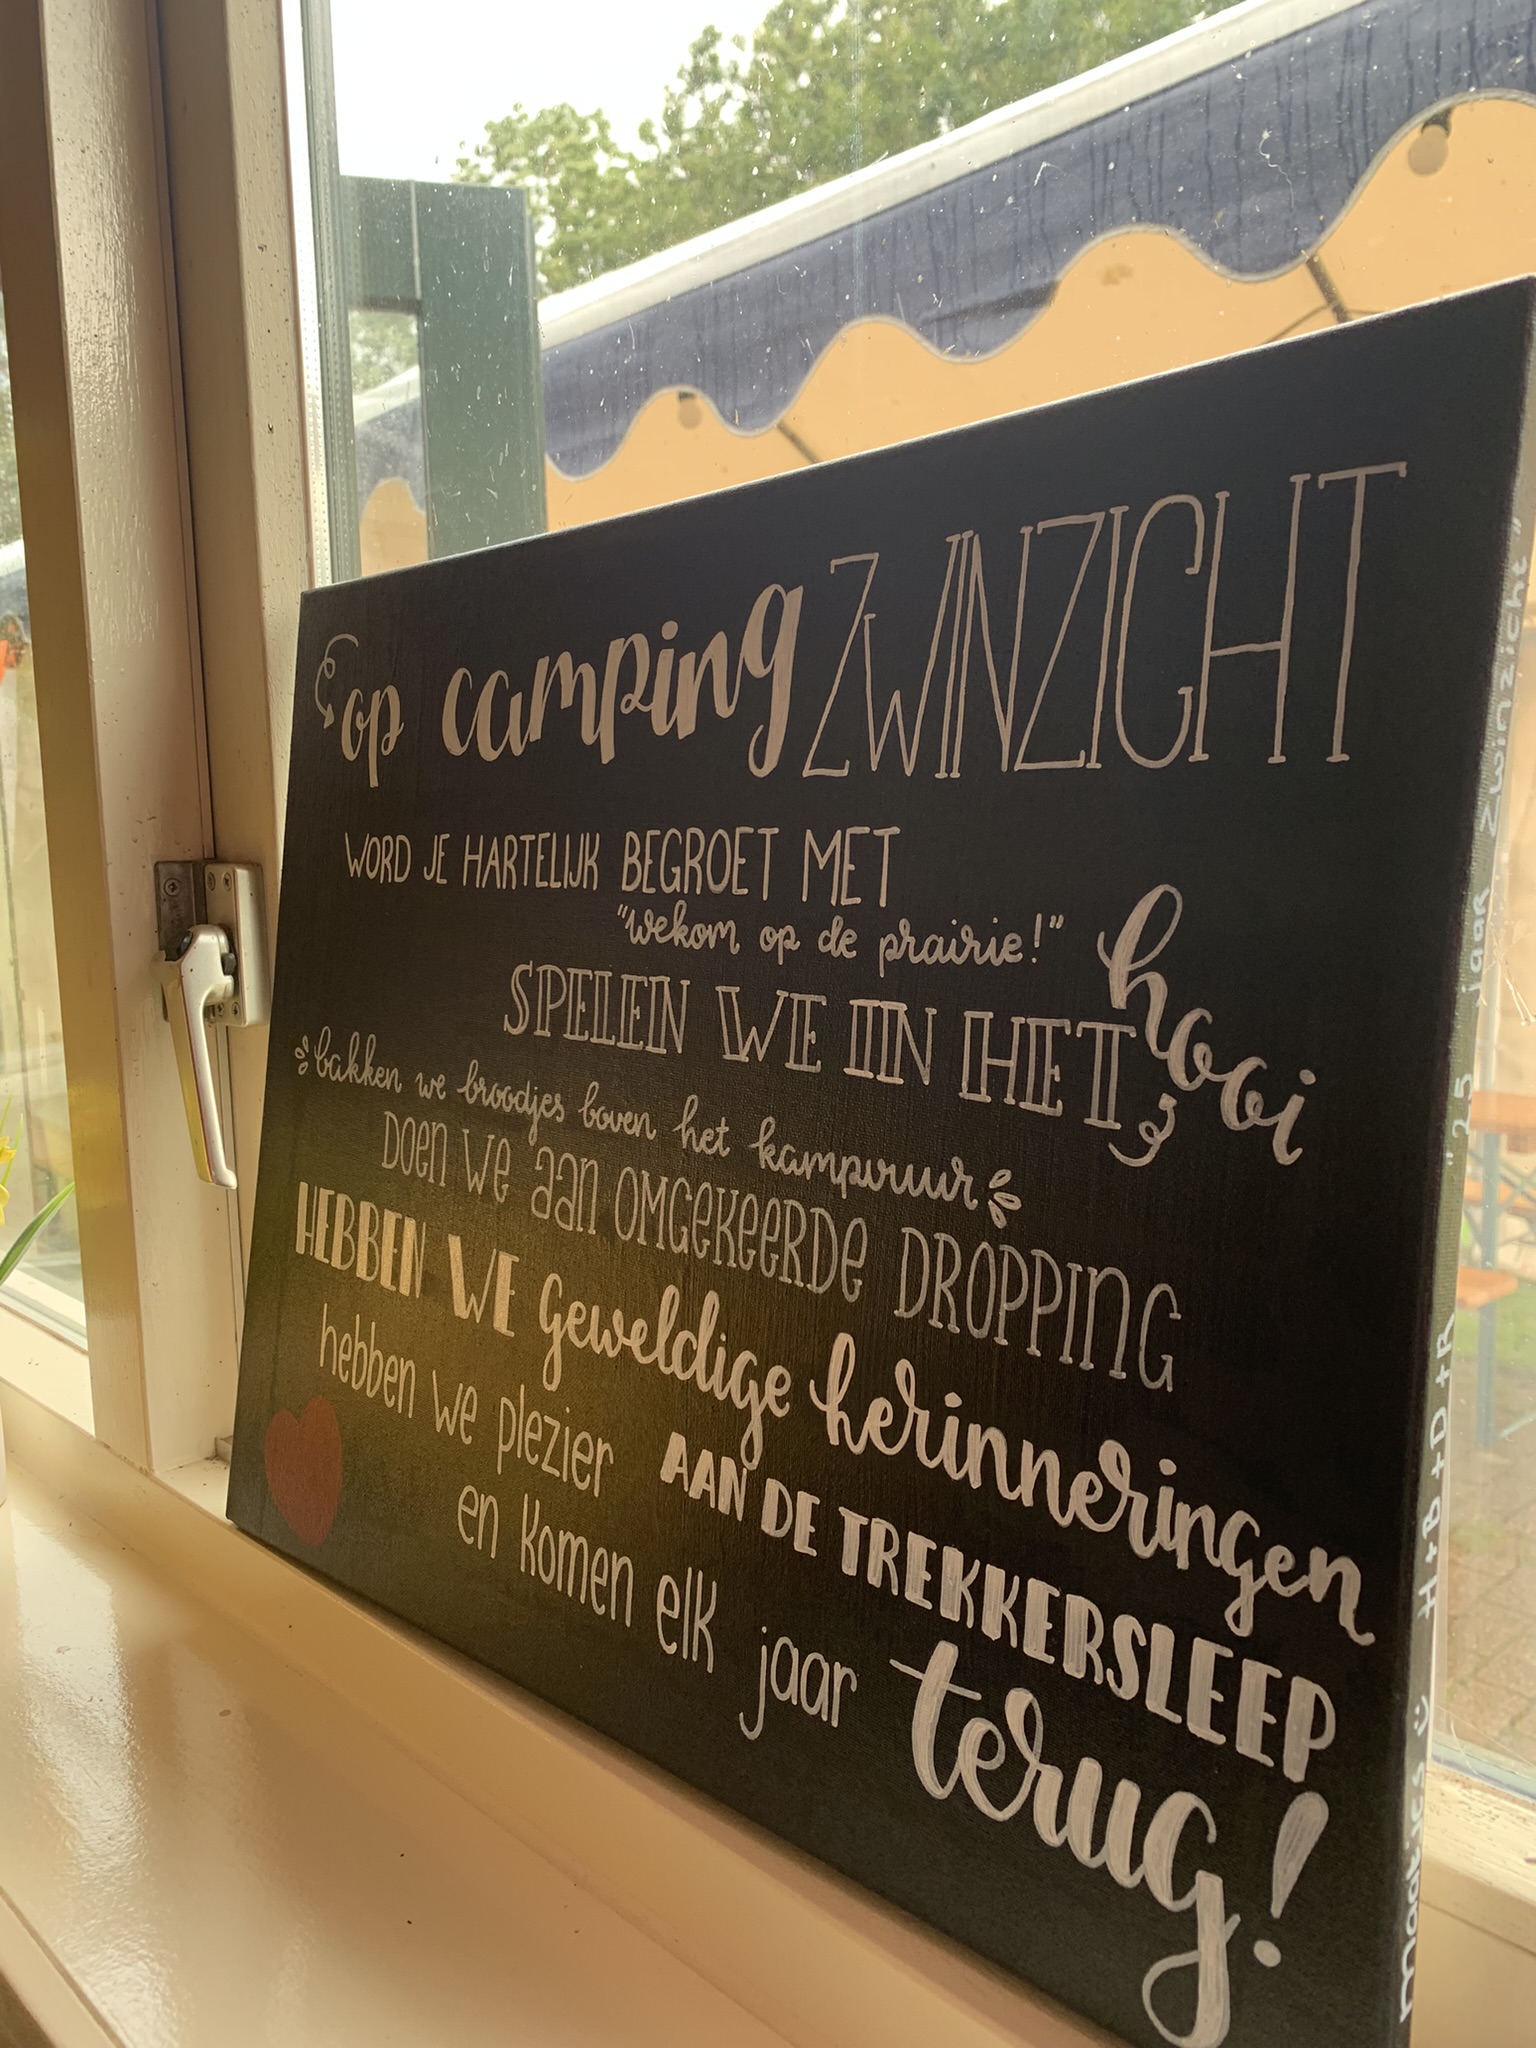 op camping ZWINZICHT
WORD JE HARTELIJK BEGROET MET
"wekom op de prairie!"
SPELEN WE IN HET hooi
bakken we broodjes boven het kampvuur
DOEN WE AAN OMGEKEERDE DROPPING
HEBBEN WE geweldige herinneringen
hebben we plezier AAN DE TREKKERSLEEP
en komen elk jaar terug!
maatjes :) H+B+D+R "25 jaar zwinzicht"